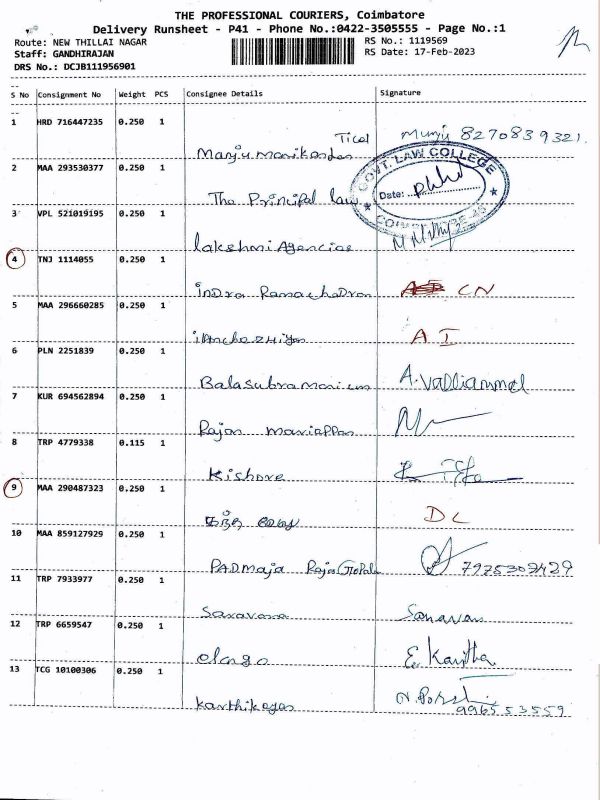 THE PROFESSIONAL COURIERS, Coimbatore
Delivery Runsheet - P41 - Phone No.:0422-3505555 - Page No.:1
Route: NEW THILLAI NAGAR
RS No.: 1119569
Staff: GANDHIRAJAN
RS Date: 17-Feb-2023
DRS No.: DCJB111956901
S No Consignment No Weight PCS Consignee Details Signature
1 HRD 716447235 0.250 1
Manju.manikandan Manju 8270839321.
2 MAA 293530377 0.250 1
The Principal Law
GOVT. LAW COLLEGE
Date:
3 VPL 521019195 0.250 1
Lakshmi Agencies
4 TNJ 1114055 0.250 1
indra Ramachadran CN
5 MAA 296660285 0.250 1
A I
6 PLN 2251839 0.250 1
Balasubramanium A. Valliammal
7 KUR 694562894 0.250 1
Rajan mariappan
8 TRP 4779338 0.115 1
Kishore
9 MAA 290487323 0.250 1
DL
10 MAA 859127929 0.250 1
PADmaja RajaGopal
11 TRP 7933977 0.250 1
Saravana Saravan
12 TRP 6659547 0.250 1
elango E. Kavitha
13 TCG 10100306 0.250 1
karthikeyan 9965553559